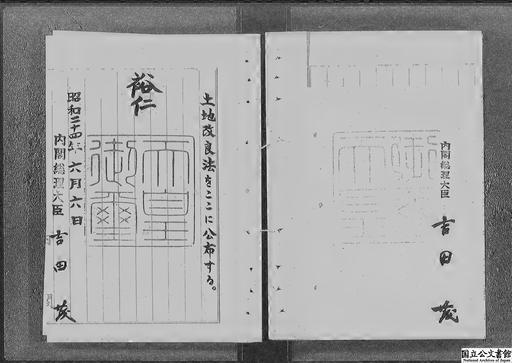 土地改良法をここに公布する。
裕仁
天皇御璽
昭和二十四年六月六日
内閣総理大臣 吉田茂
内閣総理大臣
吉田茂
国立公文書館
National Archives of Japan